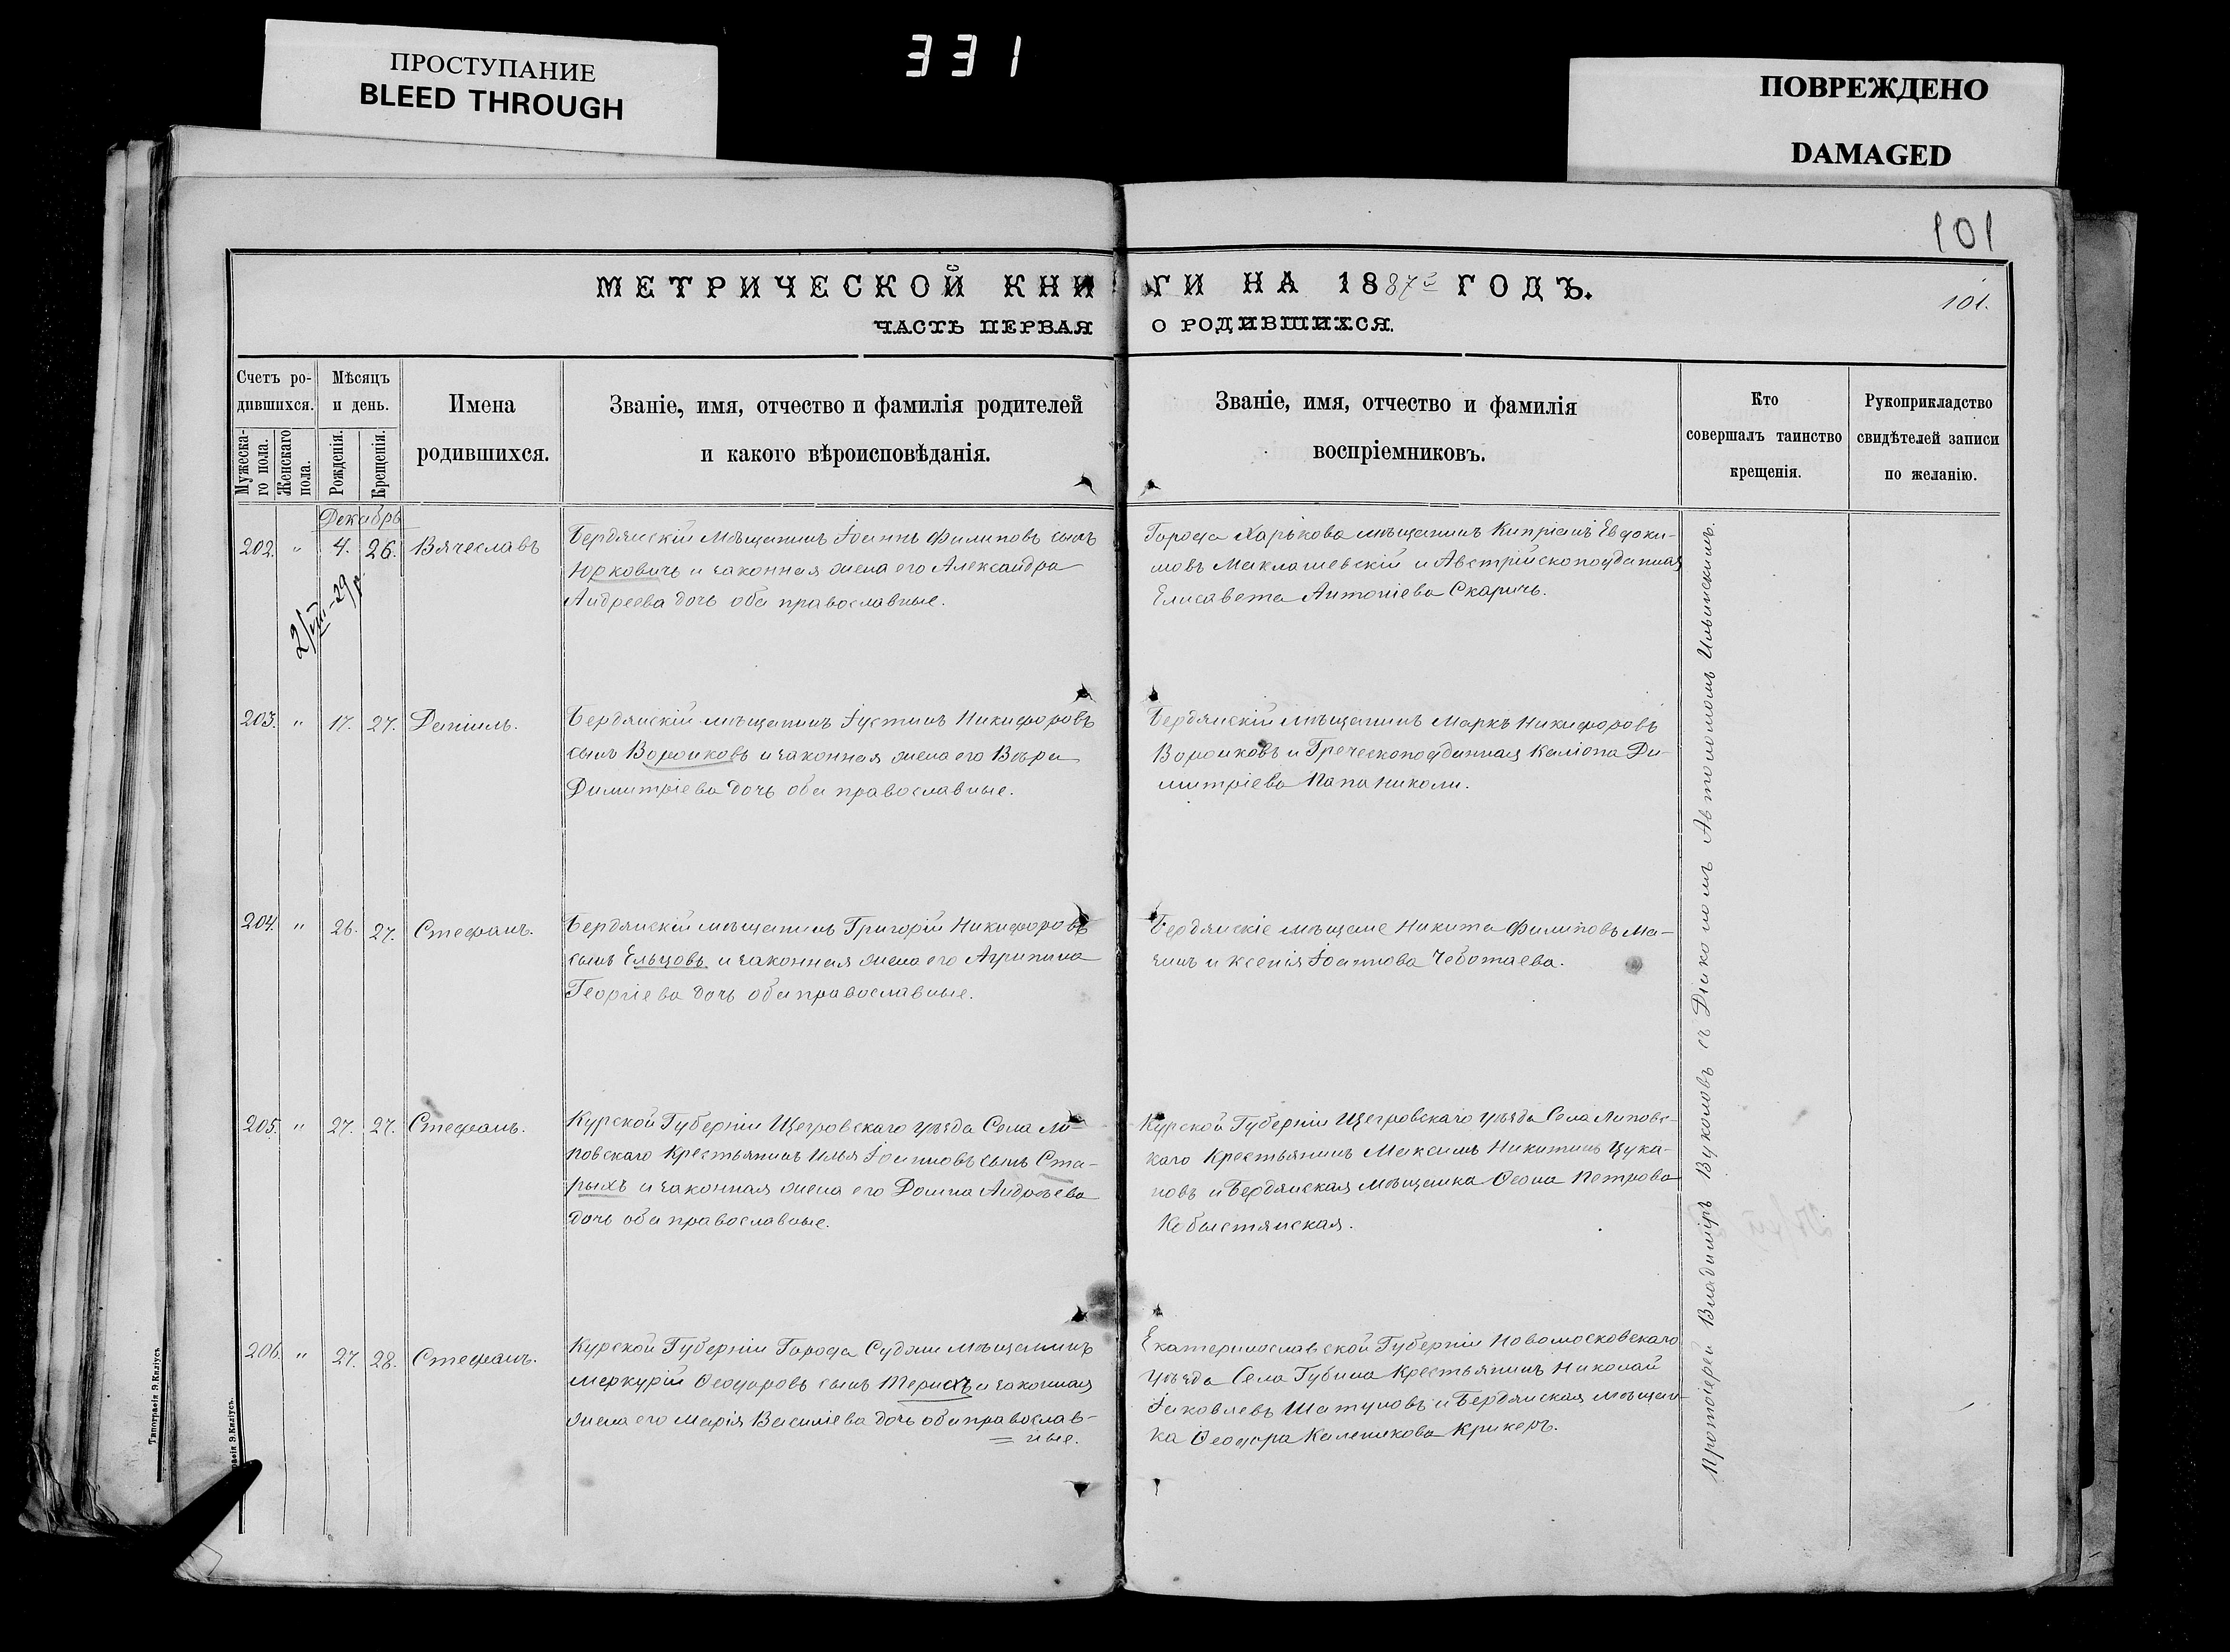 ПРОСТУПАНИЕ
BLEED THROUGH
331
ПОВРЕЖДЕНО
DAMAGED
101
МЕТРИЧЕСКОЙ КНИГИ НА 1887й ГОДЪ.
101.
ЧАСТЬ ПЕРВАЯ О РОДИВШИХСЯ.
Счетъ ро-
дившихся.
Мужеска-
го пола.
Женскаго
пола.
Мѣсяцъ
и день.
Рожденія.
Крещенія.
Имена
родившихся.
Званіе, имя, отчество и фамилія родителей
и какого вѣроисповѣданія.
Званіе, имя, отчество и фамилія
воспріемниковъ.
Кто
совершалъ таинство
крещенія.
Рукоприкладство
свидѣтелей записи
по желанію.
Декабрь
202. " 4. 26. Вячеславъ
Бердянскій Мѣщанинъ Іоаннъ Филиповъ сынъ
Юрковичъ и законная жена его Александра
Андреева дочь оба православные.
Города Харькова мѣщанинъ Кипріанъ Евдоки-
мовъ Маклашевскій и Австрійскоподданная
Елисавета Антоніева Скаричъ.
203. " 17. 27. Даніилъ.
Бердянскій мѣщанинъ Іустинъ Никифоровъ
сынъ Воронковъ и законная жена его Вѣра
Димитріева дочь оба православные.
Бердянскій мѣщанинъ Маркъ Никифоровъ
Воронковъ и Греческоподданная Каліопа Ди-
митріева Папаниколи.
204. " 26. 27. Стефанъ.
Бердянскій мѣщанинъ Григорій Никифоровъ
сынъ Ельцовъ и законная жена его Агрипина
Георгіева дочь оба православные.
Бердянскіе мѣщане Никита Филиповъ Ма-
и Ксенія Іоаннова Чеботаева.
205. " 27. 27. Стефанъ.
Курской Губерніи Щегровскаго уѣзда Села Ли-
повскаго Крестьянинъ Илья Іоанновъ сынъ Ста-
рыхъ и законная жена его Домна Андреева
дочь оба православные.
Курской Губерніи Щегровскаго уѣзда Села Липовс-
каго Крестьянинъ Максимъ Никитинъ Цука-
новъ и Бердянская Мѣщанка Ѳеона Петрова
Кобыстянская.
206. " 27. 28. Стефанъ.
Курской Губерніи Города Суджи мѣщанинъ
Меркурій Ѳеодоровъ сынъ и законная
жена его Марія Василіева дочь оба православ-
ные.
Екатеринославской Губерніи Новомосковскаго
уѣзда Села Губина Крестьянинъ Николай
Іаковлевъ Шатуновъ и Бердянская мѣщан-
ка Ѳеодора Каленикова Крикеръ.
Протоіерей Владиміръ Вуколовъ съ Діакономъ Автономомъ Ильинскимъ.
Типографія Э. Киліусъ